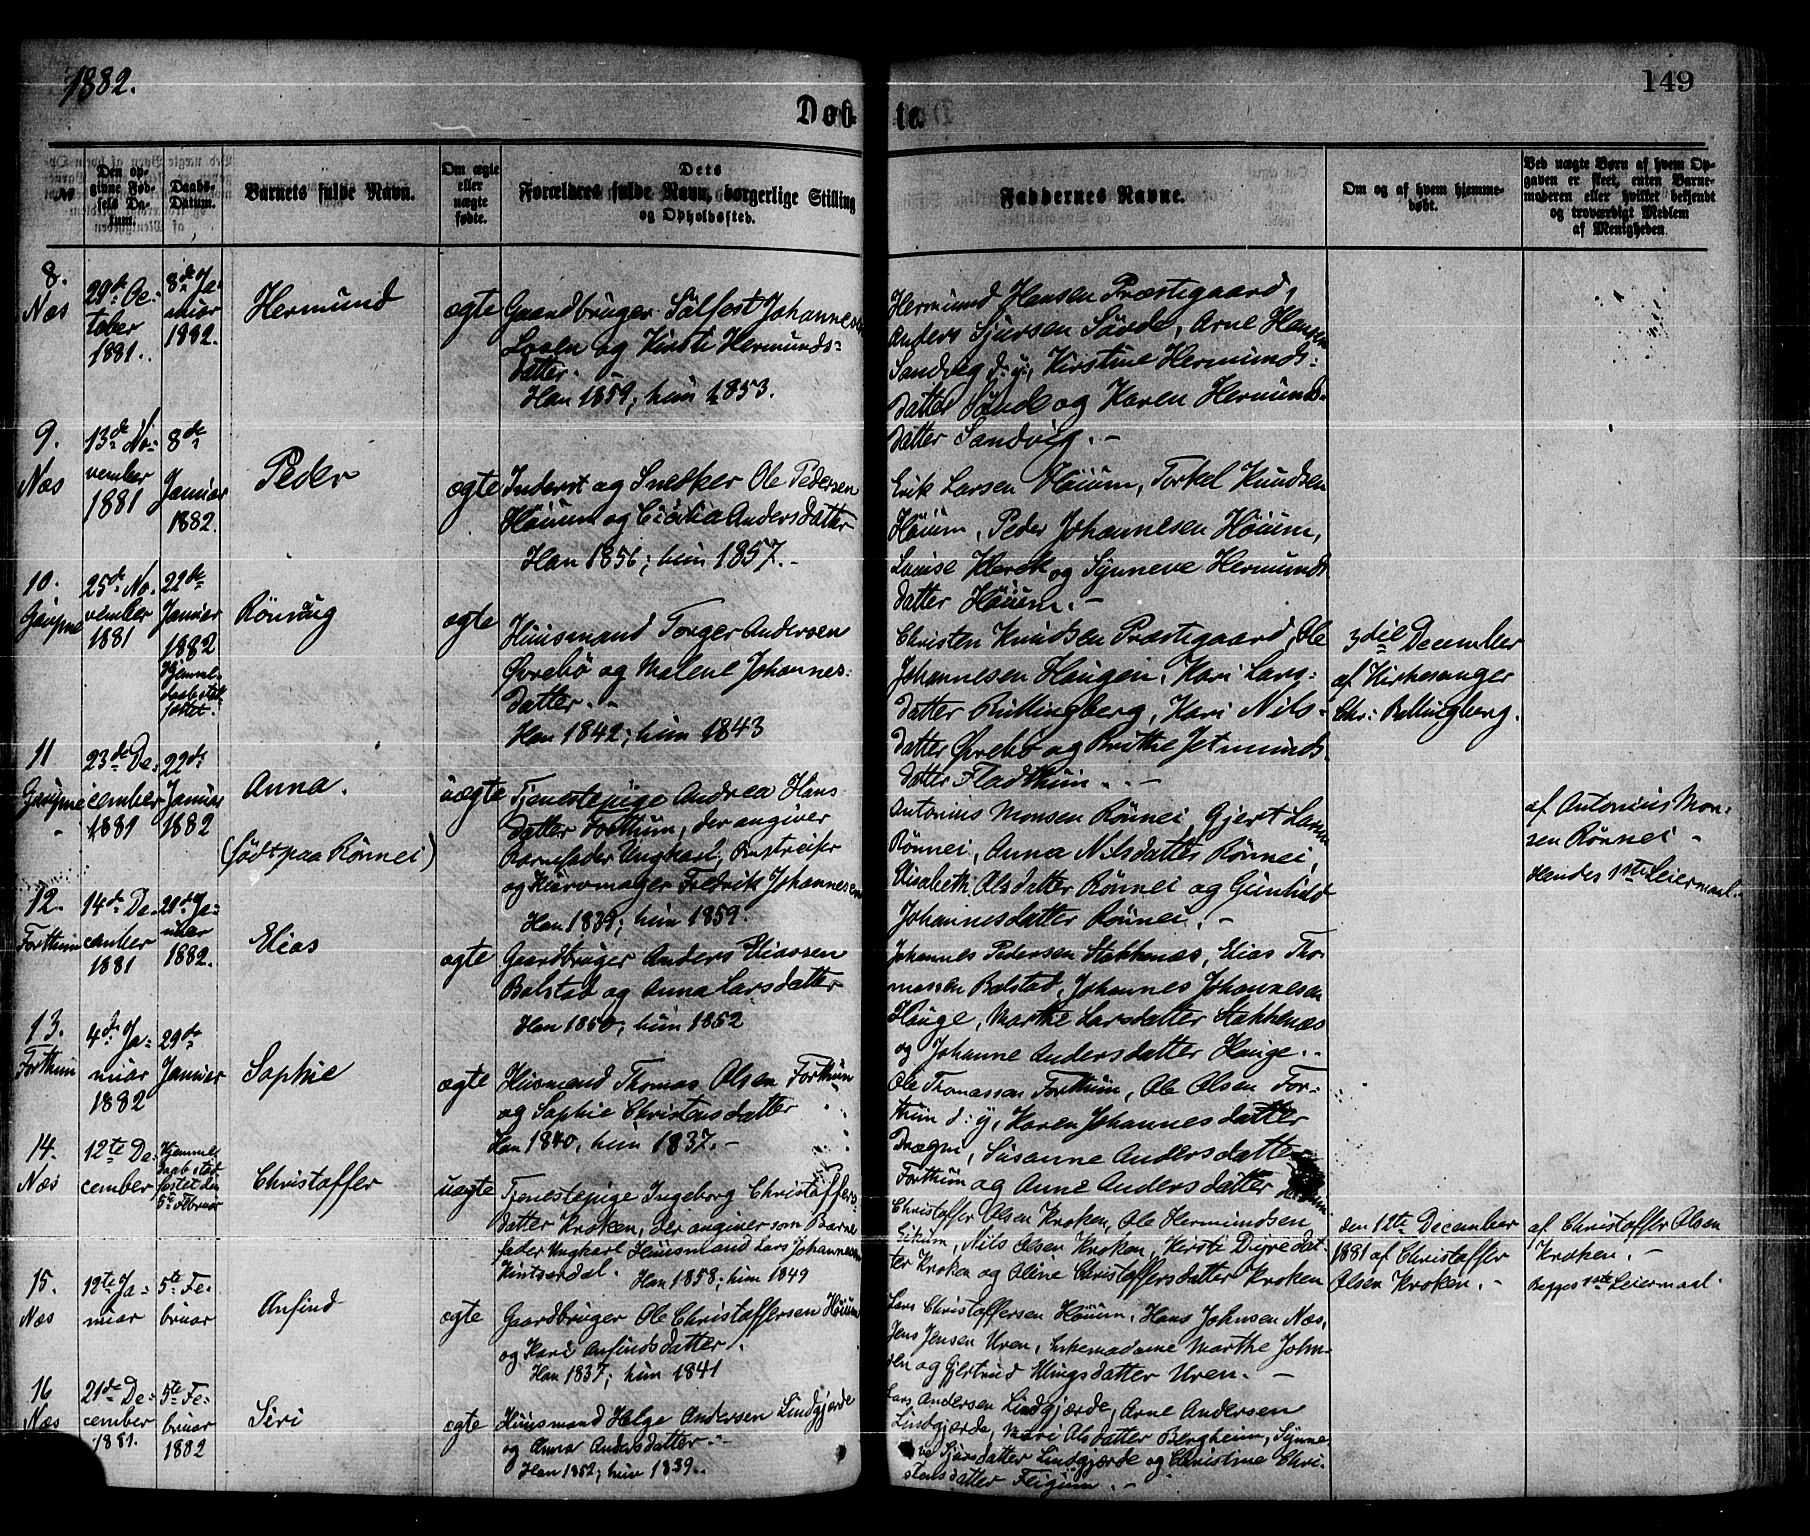 1882.
149
Døb-
te.
№
Den op-
givne Fød-
sels Da-
tum.
Daabs-
Datum.
Barnets fulde Navn.
Om ægte
eller
uægte
født.
Dets
Forældres fulde Navn, borgerlige Stilling
og Opholdssted.
Faddernes Navne.
Om og af hvem hjemme-
døbt.
Ved uægte Børn af hvem Op-
gaven er skeet, enten Barne-
moderen eller hvilket bekjendt
og troværdigt Medlem
af Menigheden.
8.
Næs
29de Oc-
tober
1881.
8de Ja-
nuar
1882.
Hermund
ægte
Gaardbruger Sølfest Johannesen
og Kirsti Hermunds-
datter. -
Han 1859; hun 1853.
Hermund Hansen Præstegaard,
Anders Sjursen Sørde, Arne Hansen
Sandvig d: y:, Kirstine Hermunds-
datter Sønde og Karen Hermunds-
datter Sandvig. -
9.
Næs
13de No-
vember
1881
8de
Januar
1882.
Peder
ægte
Inderst og Snedker Ole Pedersen
Høium og Cicilia Andersdatter
Han 1856; hun 1857. -
Erik Larsen Høium, Torkel Knudsen
Høium, Peder Johannesen Høium,
Louise Klerck og Synneve Hermunds
datter Høium. -
10.
Gaupne
25de No-
vember
1881
22de
Januar
1882
Hjemme-
daab stad-
fæstet.
Rønnaug
ægte
Huusmand Torger Andersen
Øvrebø og Malene Johannes-
datter. -
Han 1842; hun 1843
Christen Knudsen Præstegaard, Ole
Johannesen Haugen, Kari Lars-
datter Bullingberg, Kari Nils-
datter Øvrebø og Brithe Jetmunds-
datter Fladthum. -
3die December
af Kirkesanger
Chr: Bullingberg.
11
Gaupne
23de De-
cember
1881
22de
Januar
1882
Anna.
(født paa Rønnei)
uægte
Tjenestepige Andrea Hans-
datter Forthum, der angiver
Barnefader Ungkarl, Omstreifer
og Kurvmager Fredrik Johannesen
Han 1839; hun 1859.
Antonius Monsen Rønnei, Gjert Larsen
Rønnei, Anna Nilsdatter Rønnei,
Elisabeth Olsdatter Rønnei og Gunhild
Johannesdatter Rønnei. -
af Antonius Mon-
sen Rønnei -
Hendes 1ste Leiermaal.
12.
Forthun
14de De-
cember
1881
29de Ja-
nuar
1882.
Elias
ægte
Gaardbruger Anders Eliassen
Bolstad og Anna Larsdatter
Han 1850; hun 1852
Johannes Pedersen Stokkenæs, Elias Tho-
massen Bolstad, Johannes Johannesen
Hauge, Marthe Larsdatter Stokkenæs
og Johanne Andersdatter Hauge. -
13.
Forthun
4de Ja-
nuar
1882
29de
Januar
Sophie
ægte
Husmand Thomas Olsen Forthun
og Sophie Christensdatter
Han 1840, hun 1837. -
Ole Thomassen Forthun, Ole Olsen For-
thun d: y, Karen Johannesdatter
Drægni, Susanne Andersdatter
Forthun og Anne Andersdatter
14.
Næs
12te De-
cember
Hjemme-
daab stad-
fæstet den
5te Februar
Christoffer
uægte
Tjenestepige Ingeborg Christoffers-
datter Kroken, der angiver som Barne-
fader Ungkarl Huusmand Lars Johannesen
Kintserdal. Han 1858; hun 1849
Christoffer Olsen Kroken, Ole Hermundsen
Eikum, Nils Olsen Kroken, Kirsti Dyredat-
ter Kroken og Oline Christoffersdatter Kroken
den 12te December
1881 af Christoffer
Olsen Kroken. -
af Christoffer Olsen
Kroken. -
Begges 1ste Leiermaal
15.
Næs
12te Ja-
nuar
5te Fe-
bruar
Anfind
ægte
Gaardbruger Ole Christoffersen Høium
og Kari Anfindsdatter.
Han 1837; hun 1841
Lars Christoffersen Høium, Hans Johnsen Næs,
Jens Jensen Uren, Marthe John-
sen og Gjertrud Ellingsdatter Uren. -
16
Næs
21de De-
cember
1881.
5te Fe-
bruar
1882
Siri
ægte
Huusmand Helge Andersen Lindgjærde
og Anna Andersdatter. -
Han 1852; hun 1839.
Lars Andersen Lindgjærde, Arne Andersen
Lindgjærde, Mari Olsdatter Bergheim, Synne-
ve Sjursdatter Lindgjærde og Christine Chri-
stensdatter Feigum. -